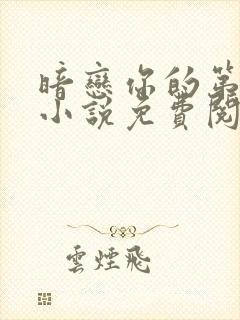 暗戀你的第
小說免費閱
雲煙飛